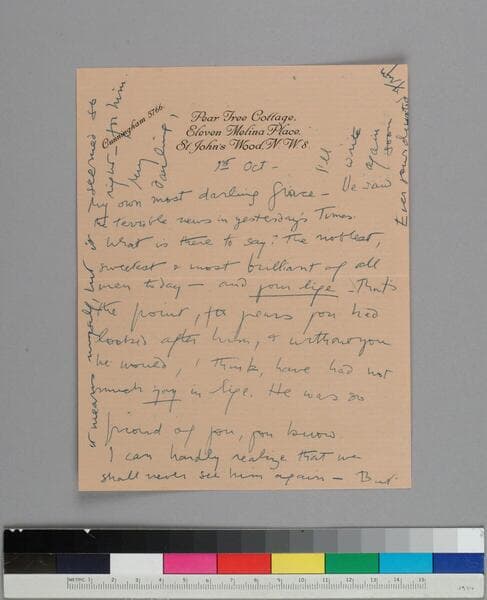 Cunningham 5766.
Pear Tree Cottage,
Eleven Melina Place,
St John's Wood, N.W.8
1st Oct -
My own most darling Grace - We saw
the terrible news in yesterday's Times.
What is there to say? The noblest,
sweetest & most brilliant of all
men today - and your life. That's
the point, for years you had
looked after him, & without you
he would, I think, have had not
much joy in life. He was so
proud of you, you know.
I can hardly realize that we
shall never see him again - But
it means myself, but it seemed so
right - for him.
My
darling,
I'll
write
again
soon
Ever your devoted
METRIC 1 2 3 4 5 6 7 8 9 10 11 12 13 14 15